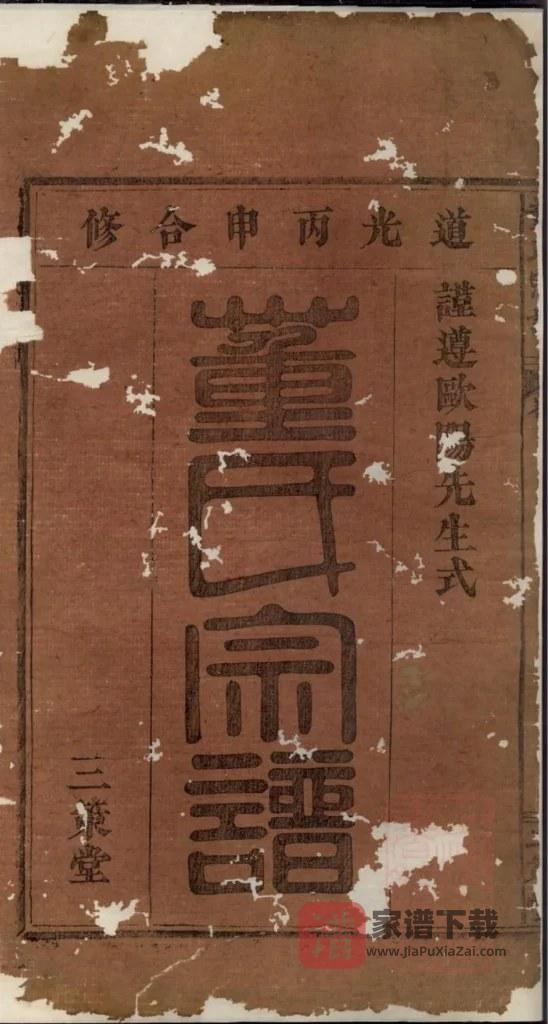 道光丙申合修
謹遵歐陽先生式
董氏宗譜
三策堂
譜
家谱下载
www.jiaPuXiaZai.com